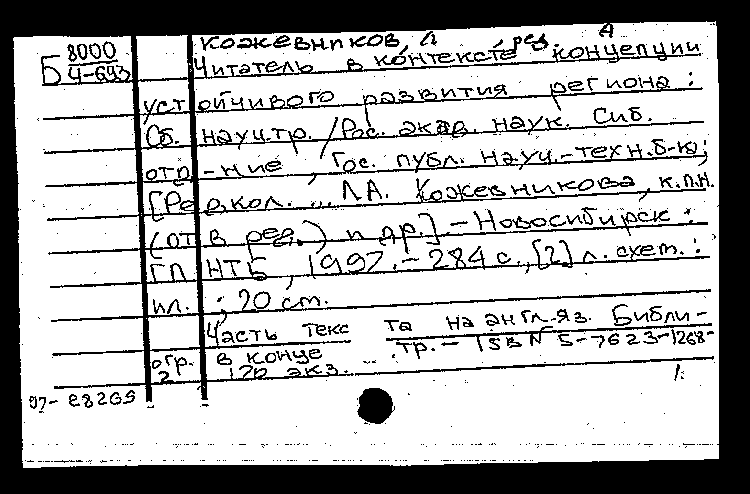 Б 8000
4-693
Кожевников, Л , ред. А
Читатель в контексте концепции
устойчивого развития региона:
Сб. науч.тр. /Рос. акад. наук. Сиб.
отд-ние, Гос. публ. науч.-техн.б-ка;
[Редкол. ... Л.А. Кожевникова, к.п.н.
(отв ред.) и др.] - Новосибирск:
ГПНТБ, 1997. - 284 с., [2] л. схем.:
ил. ; 20 см.
Часть текста на англ.яз. Библи-
огр. в конце ... тр. - ISBN 5-7623-1268-
2 170 экз.
97-28269